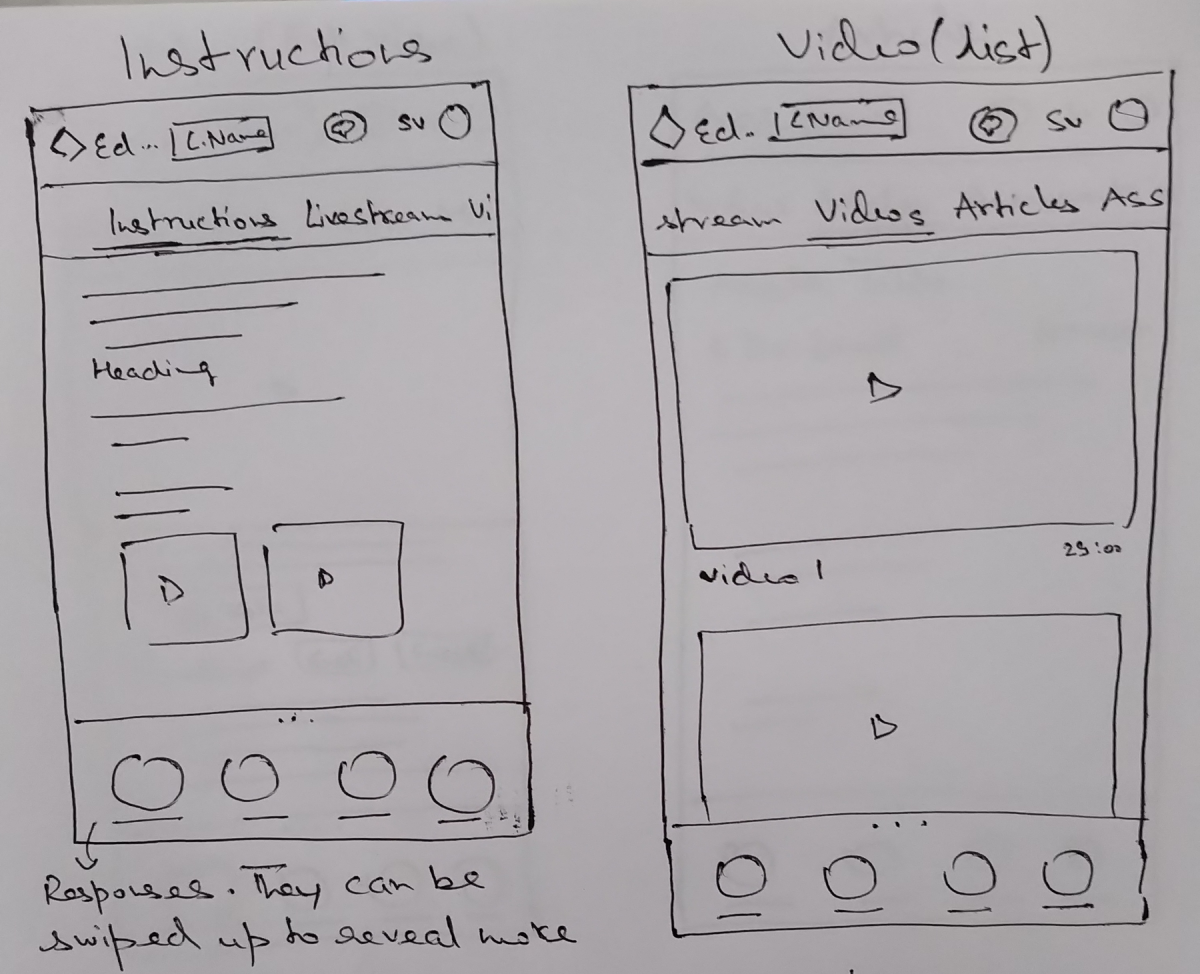 Instructions
Ed... C.Name SU
Instructions Livestream Vi
Heading
...
Responses. They can be
swiped up to reveal more
Video (list)
Ed.. C.Name SU
stream Videos Articles Ass
29:00
video 1
...